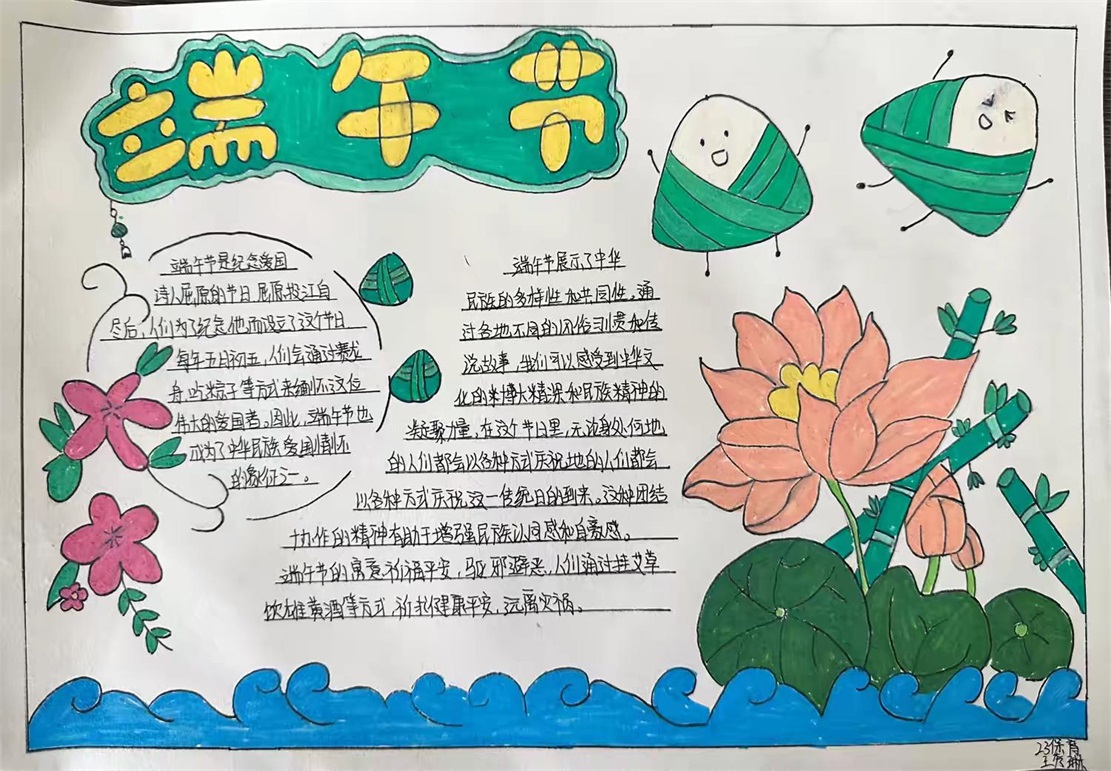 端午节
端午节是纪念爱国
诗人屈原的节日,屈原投江自
尽后,人们为了纪念他而设立了这个节日
每年五月初五,人们会通过赛龙
舟,吃粽子等方式来缅怀这位
伟大的爱国者。因此,端午节也
成为了中华民族爱国情怀
的象征之一。
端午节展示了中华
民族的多样性和共同性。通
过各地不同的风俗习惯和传
说故事,我们可以感受到中华文
化的博大精深和民族精神的
凝聚力量,在这个节日里,无论身处何地
的人们都会以各种方式庆祝地的人们都会
以各种方式庆祝这一传统日的到来。这种团结
协作的精神有助于增强民族认同感和自豪感。
端午节的寓意祈福平安,驱邪避恶,人们通过挂艾草
饮雄黄酒等方式,祈求健康平安,远离灾祸。
23体育